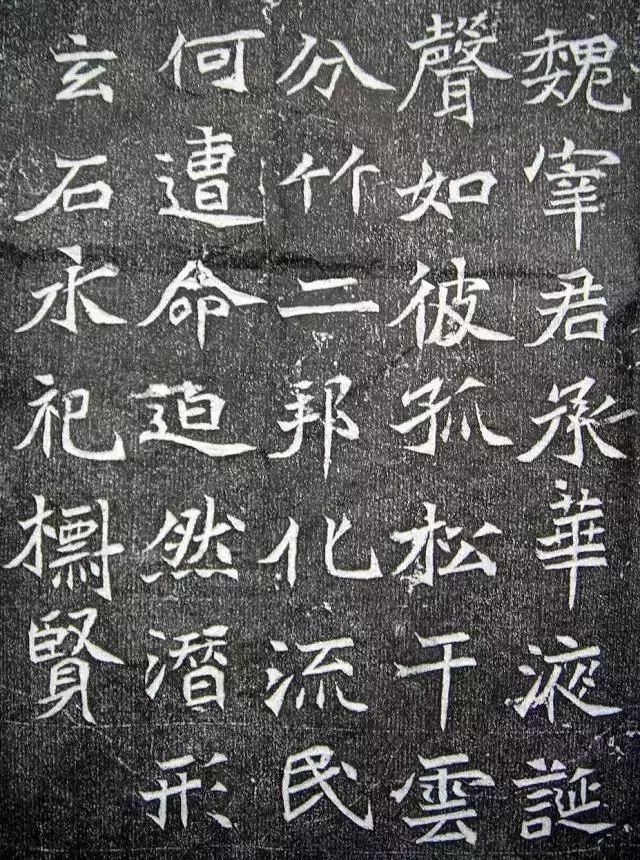 魏宰君承華液誕
聲如彼孤松干雲
分竹二邦化流民
何遭命迫然潛形
玄石永祀賢